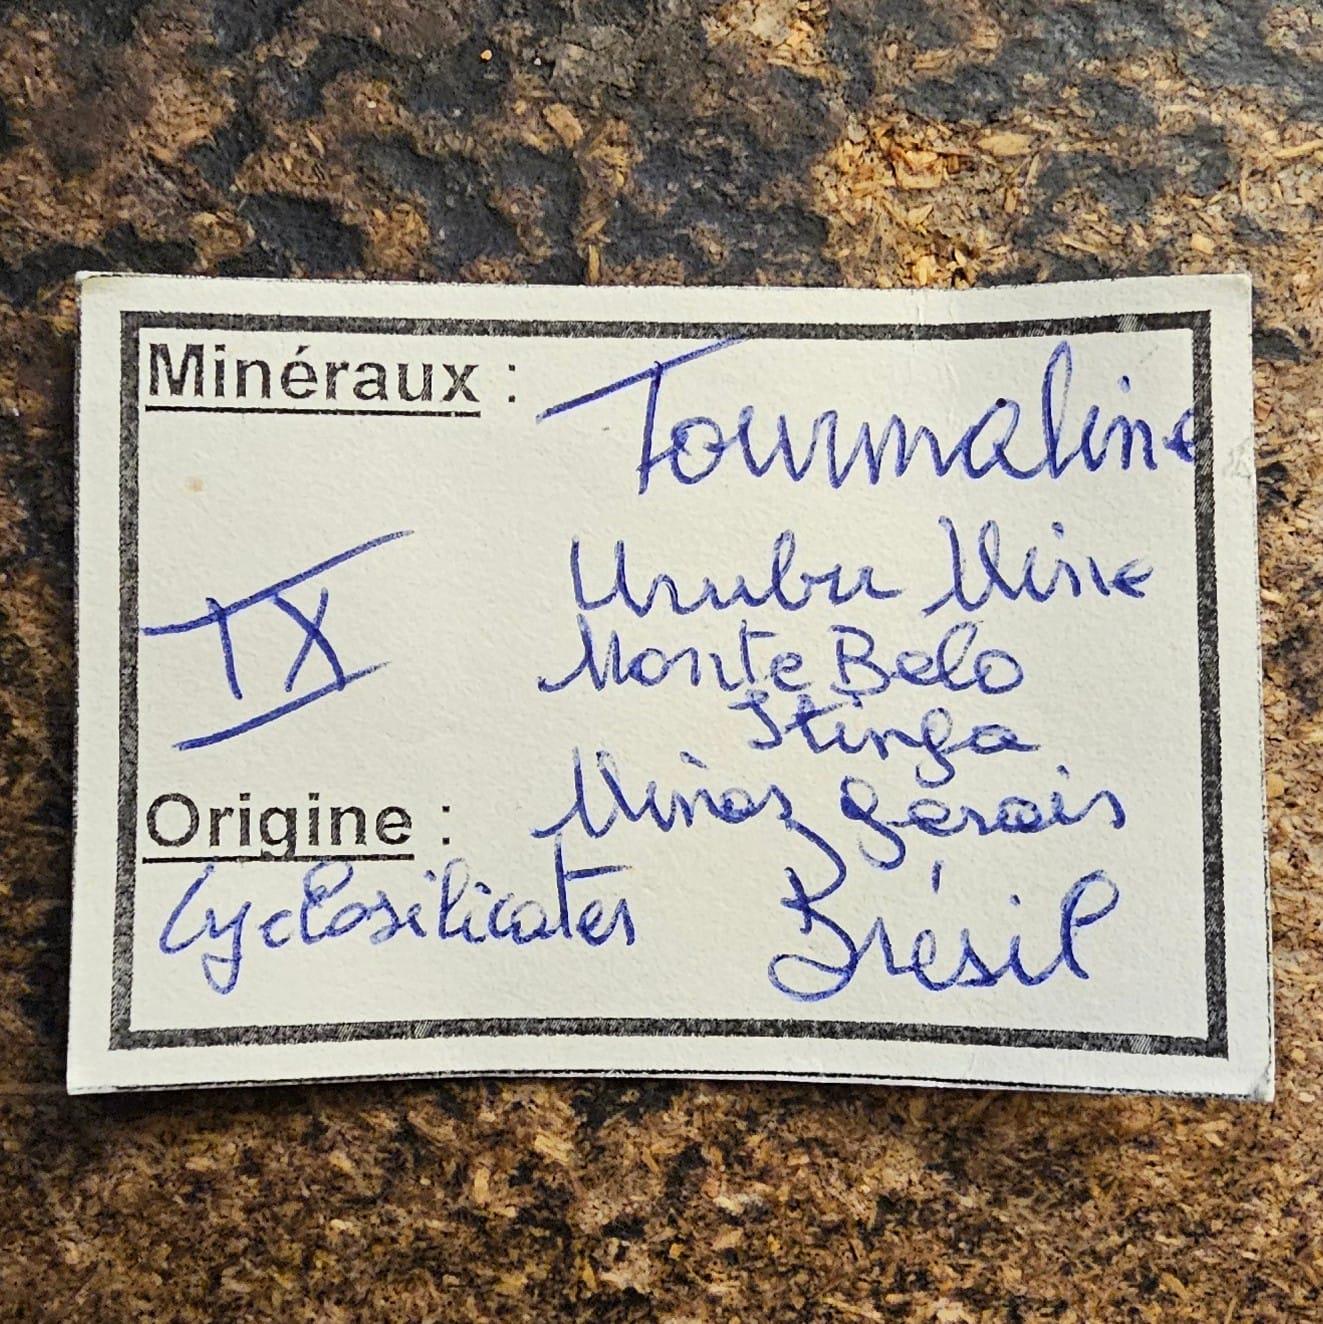 Minéraux : Tourmaline
Urubu Mine
IX
Monte Belo
Itinga
Minas gerais
Origine :
Cyclosilicates
Brésil